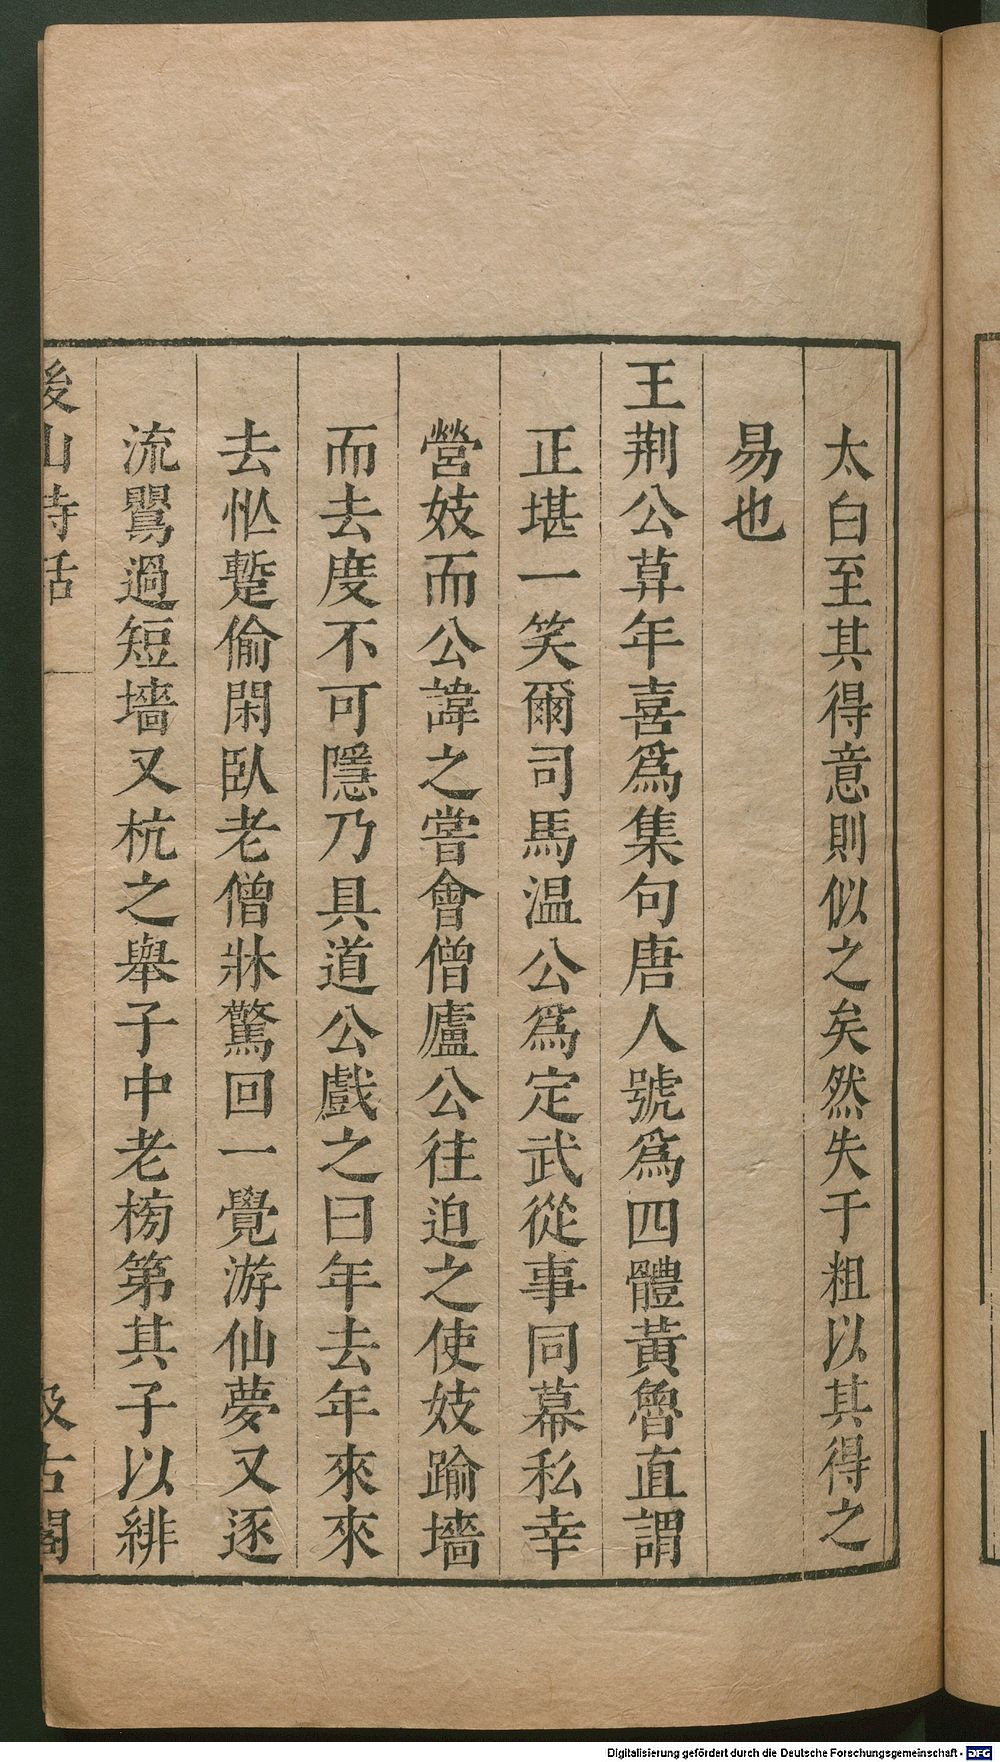 太白至其得意則似之矣然失于粗以其得之
易也
王荆公暮年喜爲集句唐人號爲四體黃魯直謂
正堪一笑爾司馬温公爲定武從事同幕私幸
營妓而公諱之嘗會僧廬公往迫之使妓踰墻
而去度不可隱乃具道公戲之曰年去年來來
去忙蹔偷閑臥老僧牀驚回一覺游仙夢又逐
流鸎過短墻又杭之舉子中老榜第其子以緋
後山詩話 一 汲古閣
Digitalisierung gefördert durch die Deutsche Forschungsgemeinschaft - DFG